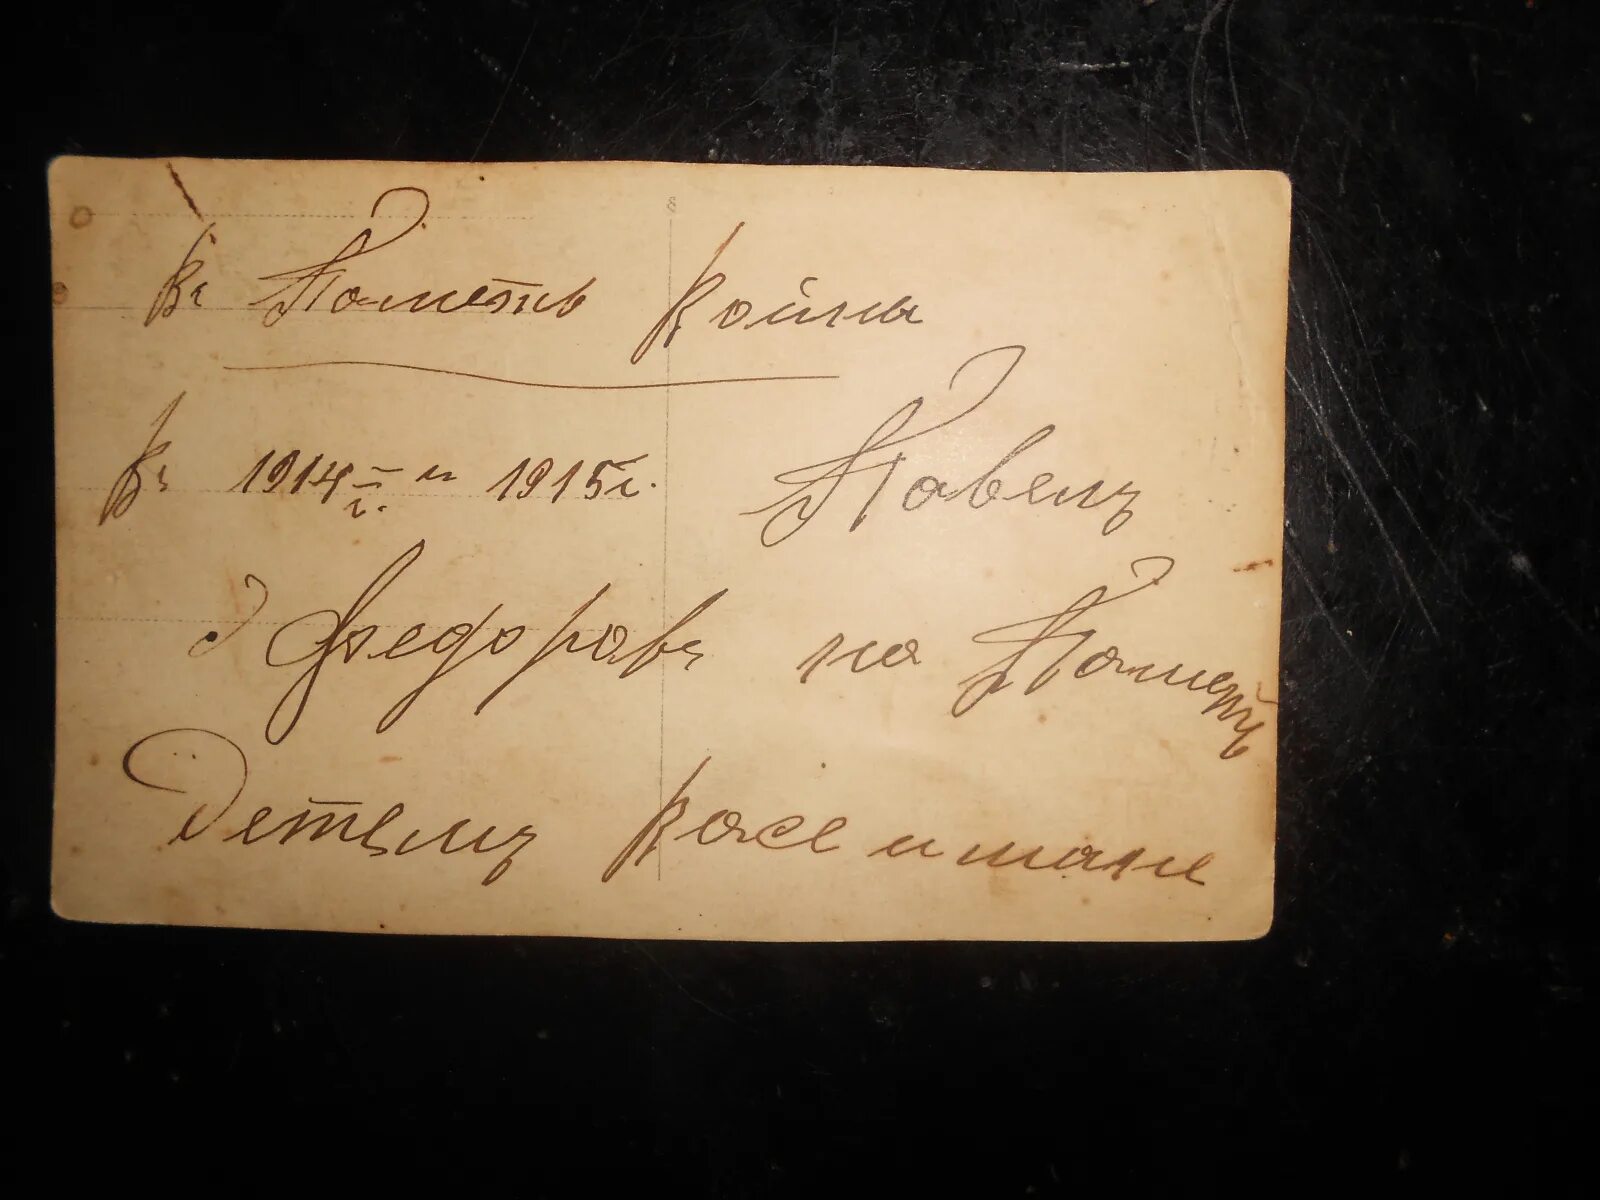 Въ Пометь Войны
Въ 1914 г. и 1915 г. Павелъ
Федоровъ на Пометь
Детемъ Васе и мане